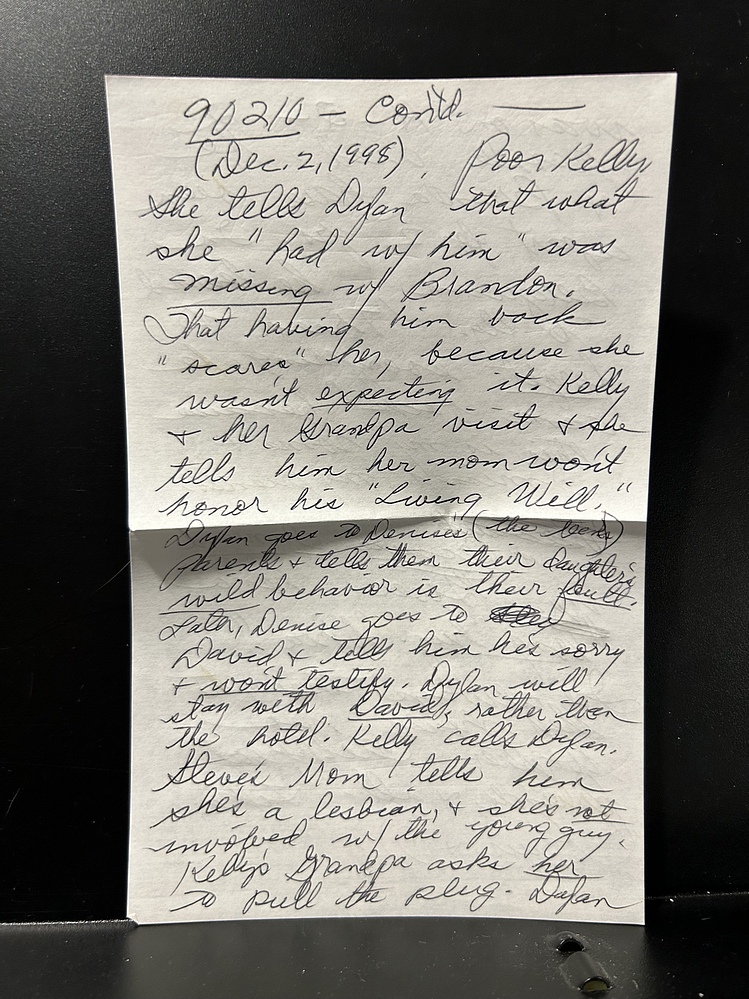 90210 - Cont'd. —
(Dec. 2, 1998), Poor Kelly.
She tells Dylan that what
she "had w/ him" was
missing w/ Brandon.
That having him back
"scares" her, because she
wasn't expecting it. Kelly
& her Grandpa visit & she
tells him her mom won't
honor his "Living Will."
Dylan goes to Denises' (the teens)
parents & tells them their daughter's
wild behavior is their fault.
Later, Denise goes to
David & tells him he's sorry
& won't testify. Dylan will
stay with David, rather than
the hotel. Kelly calls Dylan.
Steve's Mom tells him
she's a lesbian, & she's not
involved w/ the young guy.
Kelly's Grandpa asks her
to pull the plug. Dylan